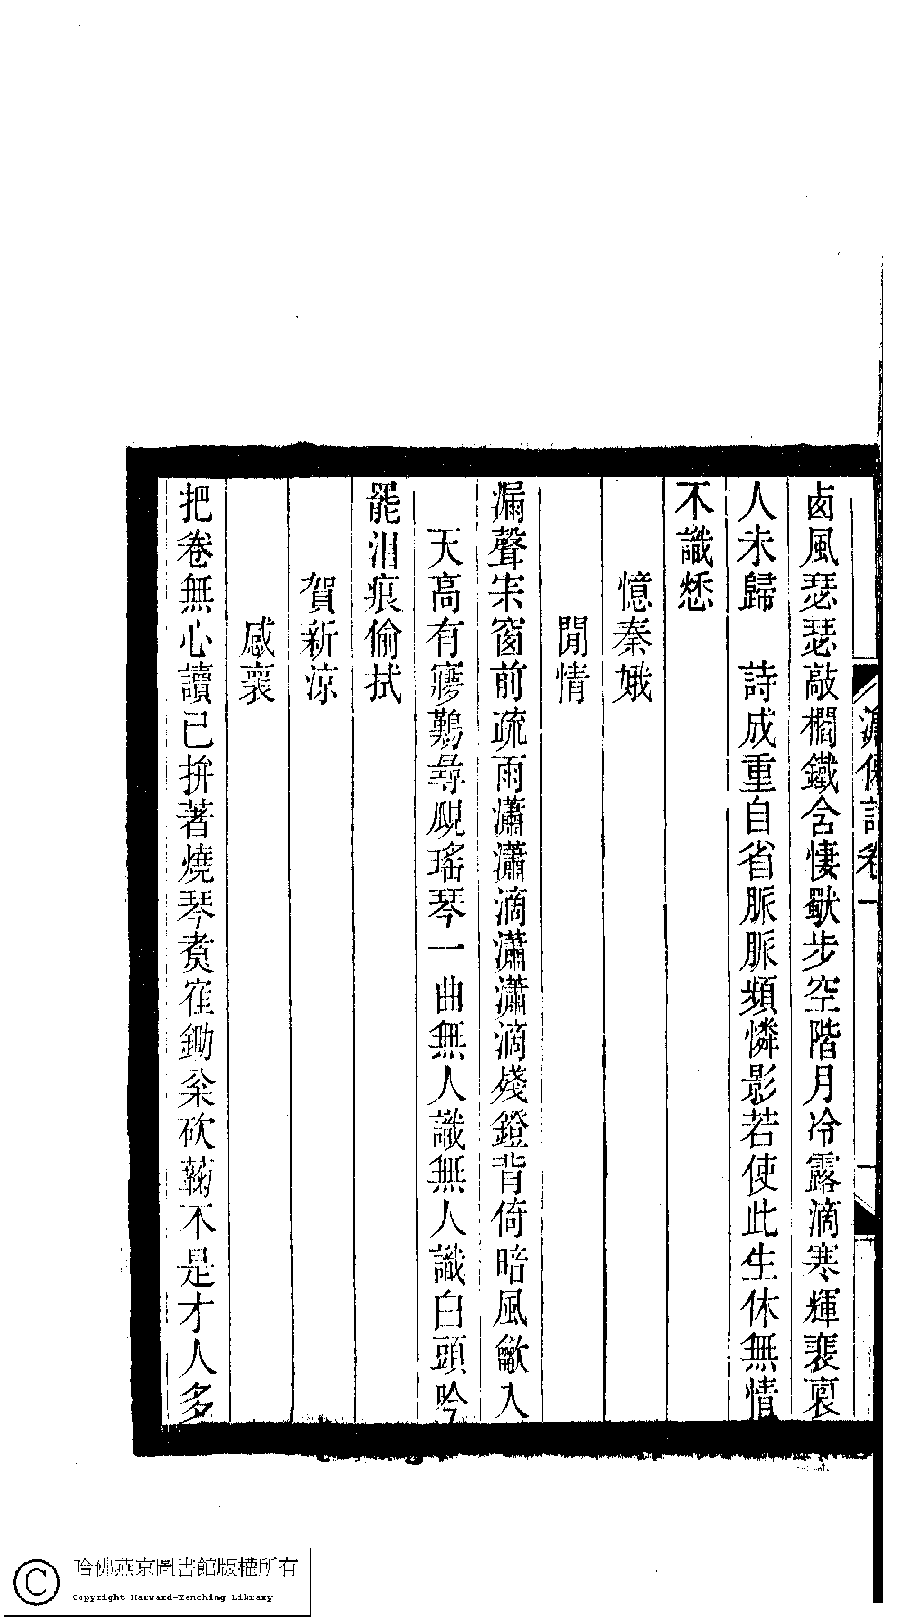 卥風瑟瑟敲櫩鐵含悽獃步空階月冷露滴寒輝裴裒
人未歸　詩成重自省脈脈頻憐影若使此生休無情
不識愁
憶秦娥
閒情
漏聲宋窗前疏雨瀟瀟滴瀟瀟滴殘鐙背倚暗風歗入
天高有寥鷄尋覛瑤琴一曲無人識無人識白頭吟
罷泪痕偷拭
賀新涼
感襄
把卷無心讀已拚著燒琴煑寉鋤栥砍蘜不是才人多
卷一
一
哈佛燕京圖書館版權所有
Copyright Harvard-Yenching Library